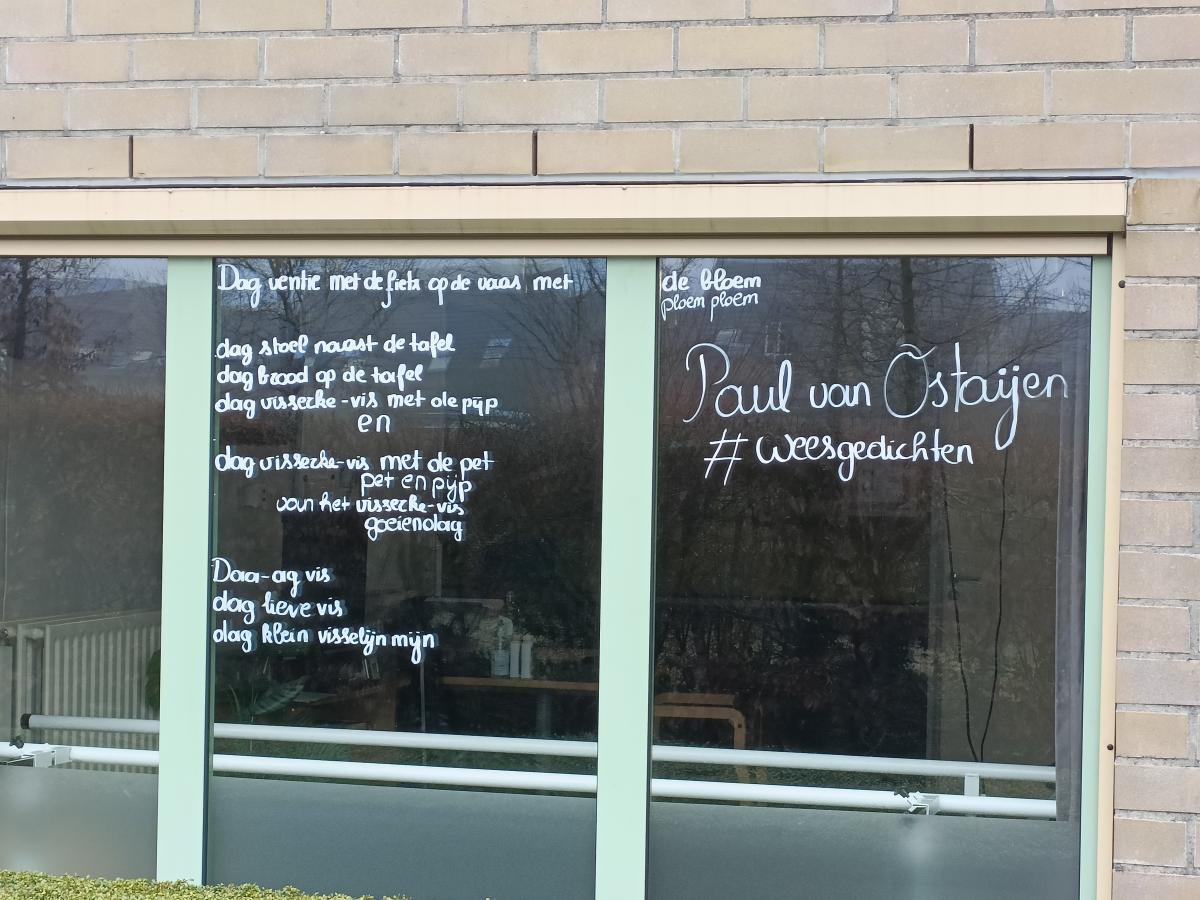 Dag ventie met de fiets op de vaas met de bloem
ploem ploem
dag stoel naast de tafel
dag brood op de tafel
dag visserke-vis met de pijp
en
dag visserke-vis met de pet
pet en pijp
van het visserke-vis
goeiendag
Daa-ag vis
dag lieve vis
dag klein visselijn mijn
Paul van Ostaijen
#weesgedichten